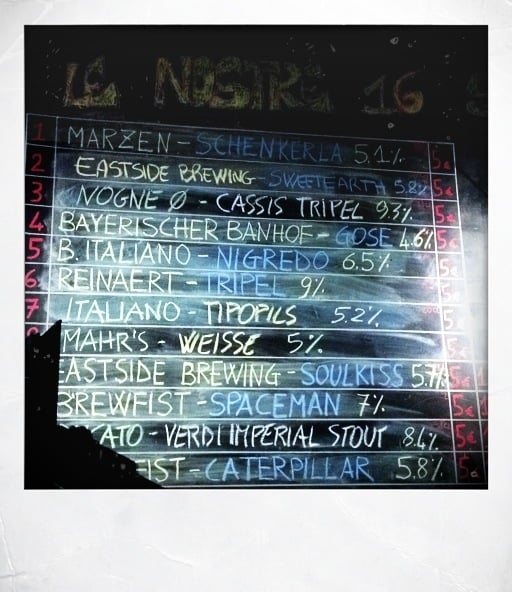 LE NOSTRE 16
1 MARZEN - SCHENKERLA 5,1% 5€
2 EASTSIDE BREWING - SWEETEARTH 5.8% 5€
3 NOGNE Ø - CASSIS TRIPEL 9.3% 5€
4 BAYERISCHER BANHOF - GOSE 4.6% 5€
5 B. ITALIANO - NIGREDO 6.5% 5€
6 REINAERT - TRIPEL 9% 5€
7 ITALIANO - TIPOPILS 5.2% 5
MAHR'S - WEISSE 5% 5€
EASTSIDE BREWING - SOULKISS 5.7% 5€
BREWFIST - SPACEMAN 7% 5€
CATO - VERDI IMPERIAL STOUT 8.4% 5€
FIST - CATERPILLAR 5.8% 5€